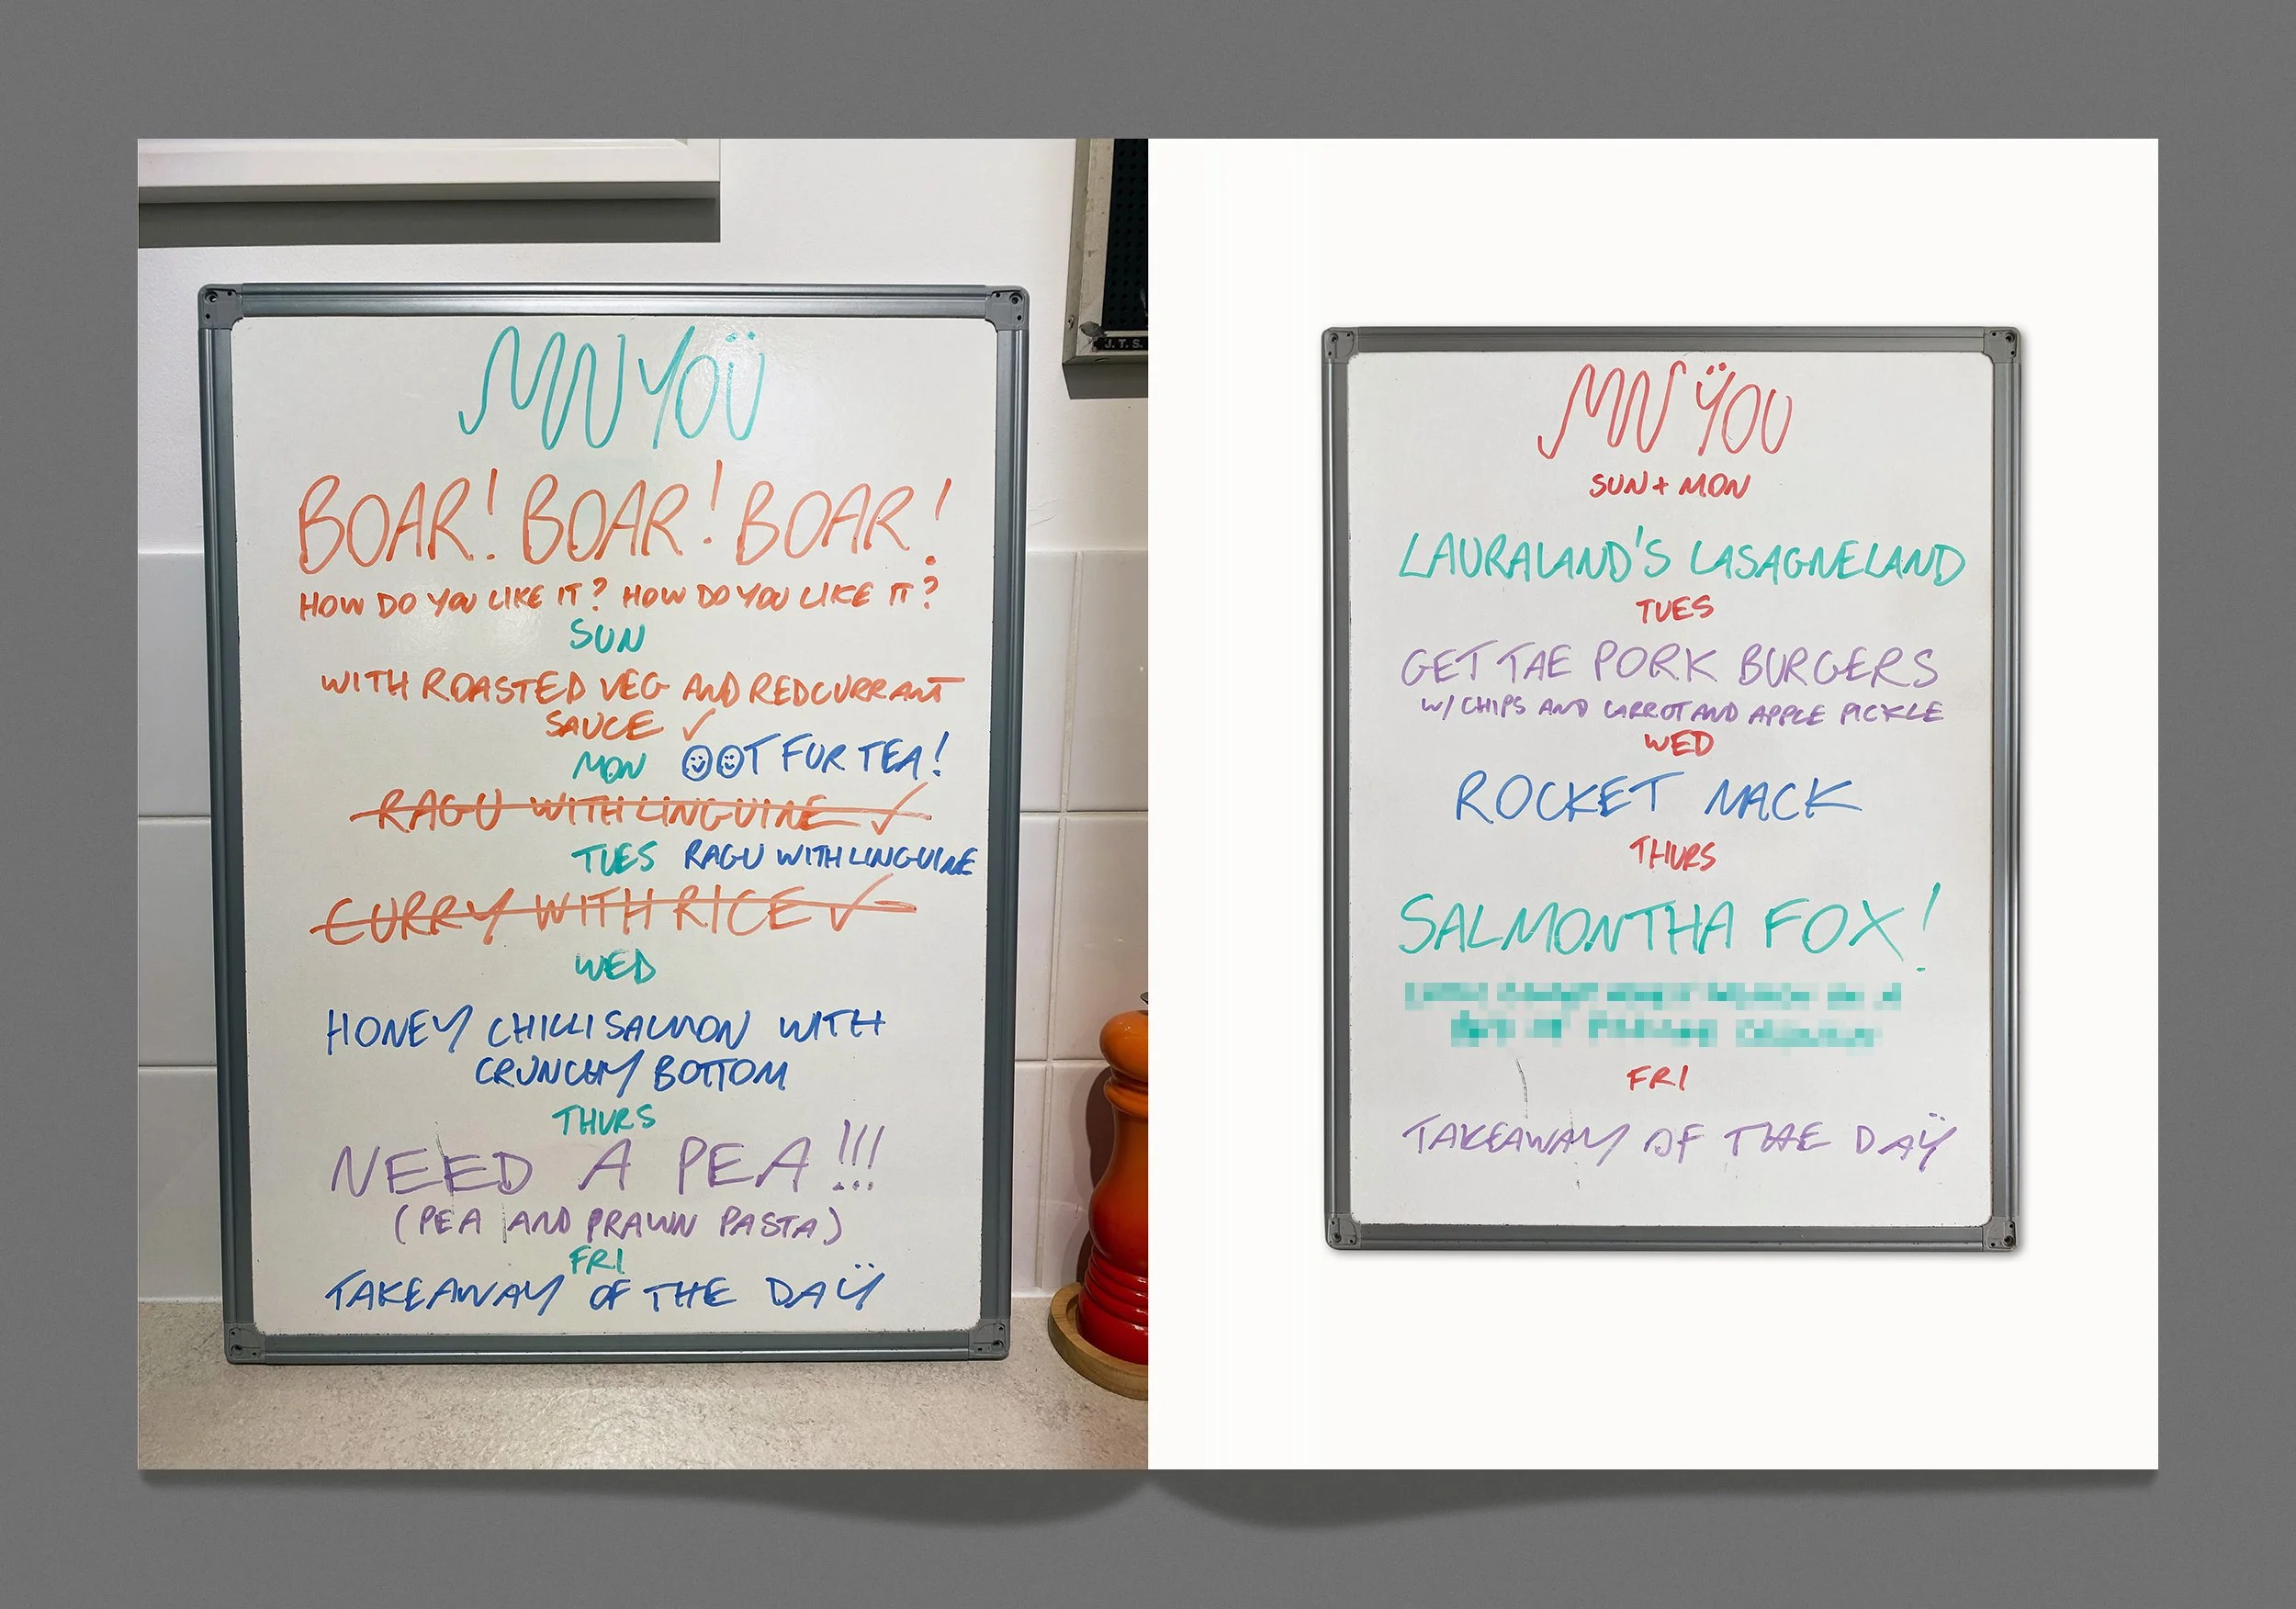 MN YOÜ
BOAR! BOAR! BOAR!
HOW DO YOU LIKE IT? HOW DO YOU LIKE IT?
SUN
WITH ROASTED VEG AND REDCURRANT
SAUCE ✓
MON OOT FUR TEA!
RAGU WITH LINGUINE ✓
TUES RAGU WITH LINGUINE
CURRY WITH RICE ✓
WED
HONEY CHILLI SALMON WITH
CRUNCHY BOTTOM
THURS
NEED A PEA!!!
(PEA AND PRAWN PASTA)
FRI
TAKEAWAY OF THE DAŸ
J.T.S.
MN ŸOU
SUN + MON
LAURALAND'S LASAGNELAND
TUES
GET TAE PORK BURGERS
W/ CHIPS AND CARROT AND APPLE PICKLE
WED
ROCKET MACK
THURS
SALMONTHA FOX!
FRI
TAKEAWAY OF THE DAŸ